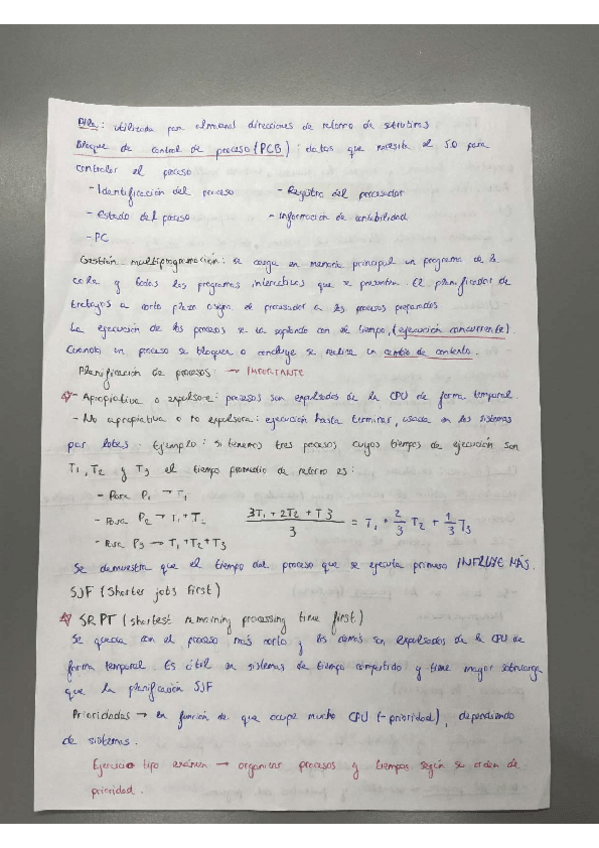 Pila: utilizada para almacenar direcciones de retorno de subrutinas
Bloque de control de proceso (PCB): datos que necesita el S.O para
controlar el proceso
- Identificación del proceso - Registro del procesador
- Estado del proceso - Información de contabilidad
- PC
Gestión multiprogramación: se carga en memoria principal un programa de la
cola y todos los programas interactivos que se presenten. El planificador de
trabajos a corto plazo asigna el procesador a los procesos preparados.
La ejecución de los procesos se va repitiendo con el tiempo, (ejecución concurrente).
Cuando un proceso se bloquea o concluye se realiza un cambio de contexto.
Planificación de procesos: → IMPORTANTE
- Apropiativa o expulsora: procesos son expulsados de la CPU de forma temporal.
- No apropiativa o no expulsora: ejecución hasta terminar, usada en los sistemas
por lotes. Ejemplo: si tenemos tres procesos cuyos tiempos de ejecución son
T1, T2 y T3 el tiempo promedio de retorno es:
- Para P1 → T1
- Para P2 → T1 + T2 3T1 + 2T2 + T3 / 3 = T1 + 2/3 T2 + 1/3 T3
- Para P3 → T1 + T2 + T3
Se demuestra que el tiempo del proceso que se ejecuta primero INFLUYE MÁS.
SJF (Shorter jobs first)
SRPT (shortest remaining processing time first)
Se queda con el proceso más corto y los demás son expulsados de la CPU de
forma temporal. Es útil en sistemas de tiempo compartido y tiene mayor sobrecarga
que la planificación SJF
Prioridades → en función de que ocupe mucho CPU (- prioridad), dependiendo
de sistemas.
Ejercicio tipo examen → organizar procesos y tiempos según su orden de
prioridad.